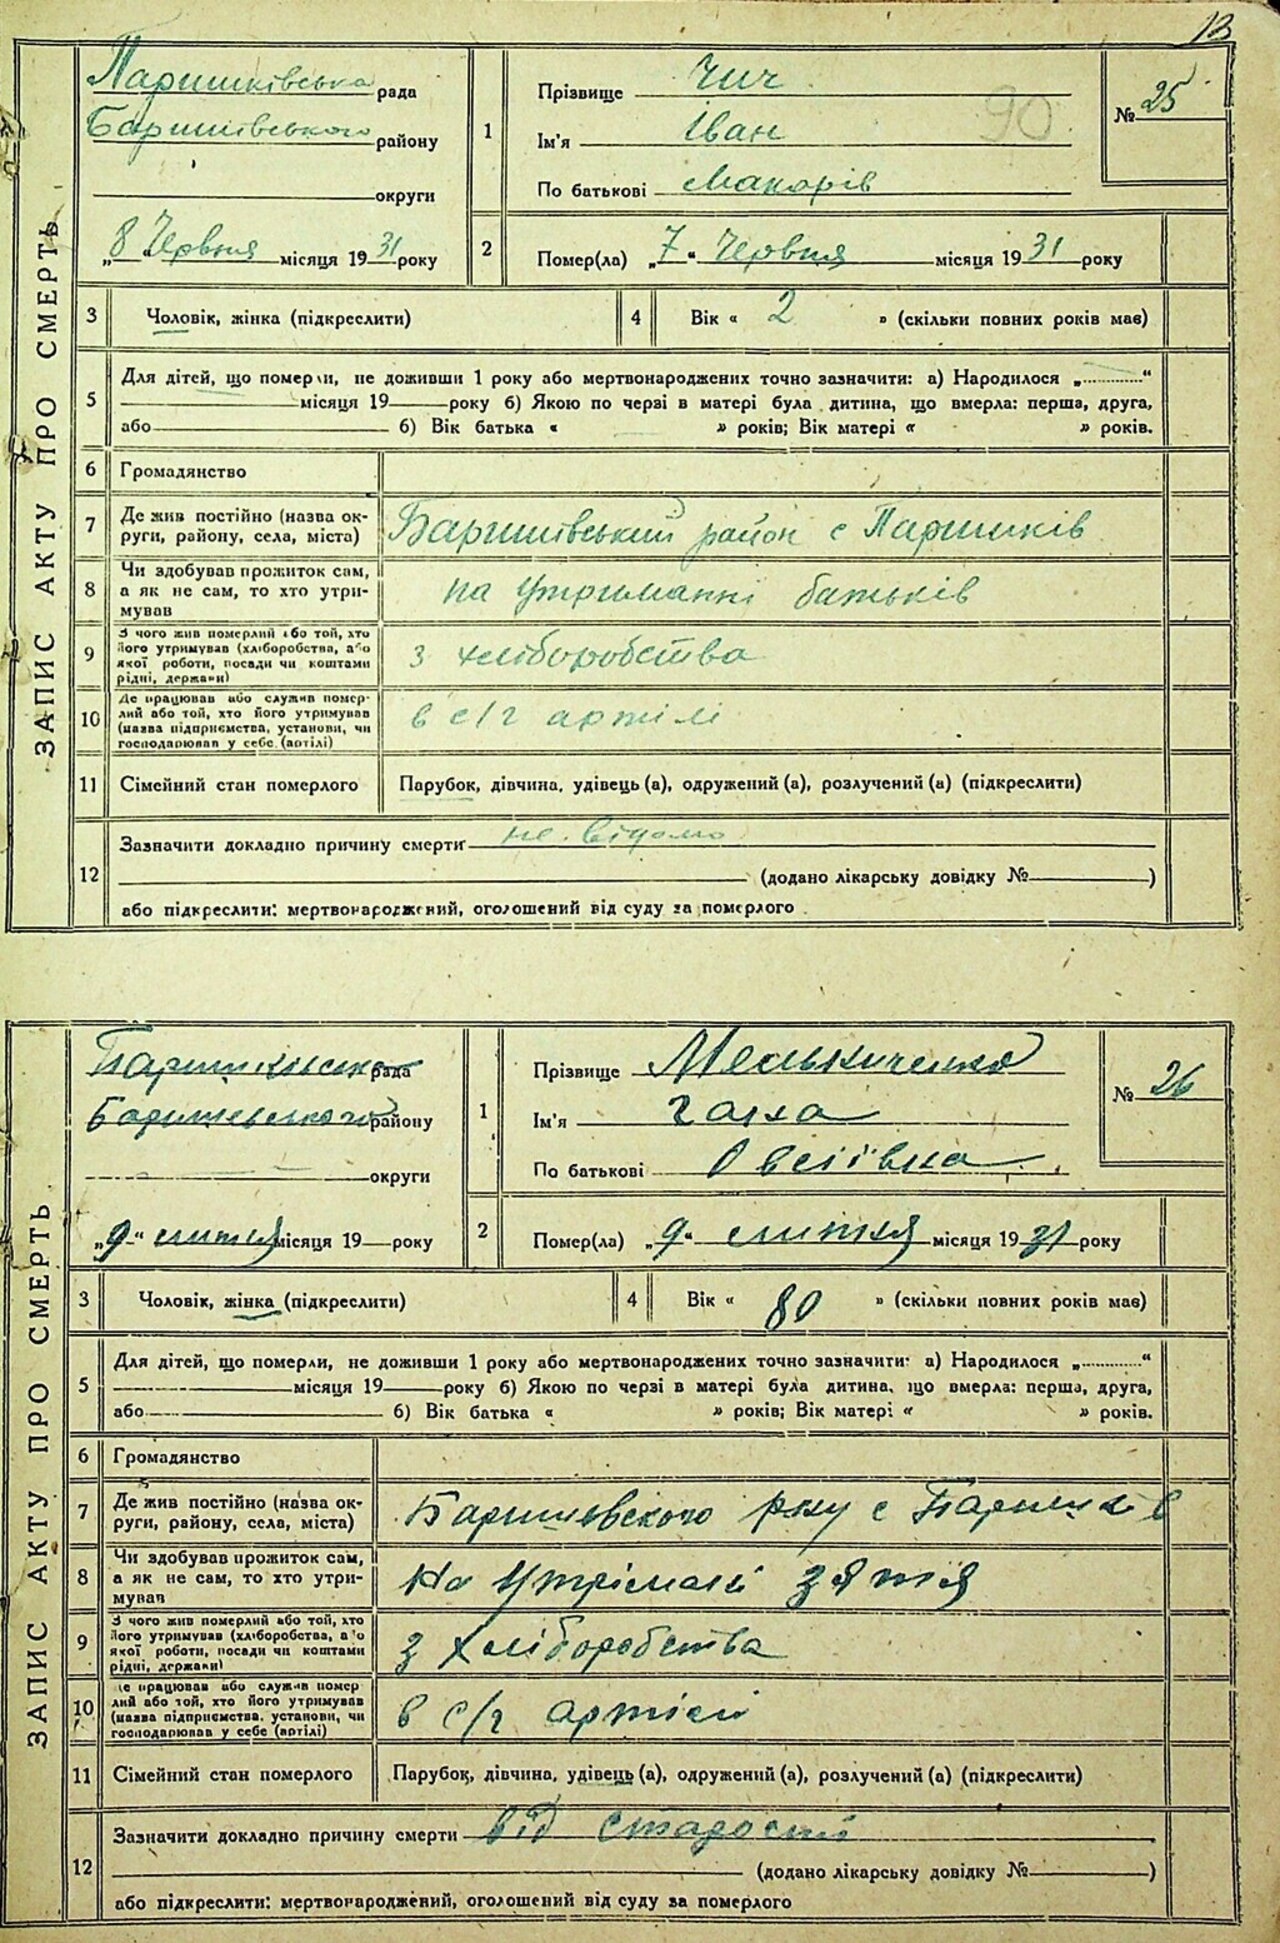 13
ЗАПИС АКТУ ПРО СМЕРТЬ
Паришківська рада
Баришівського району
округи
„8“ Червня місяця 1931 року
1
Прізвище Чич
Ім'я Іван 90
По батькові Макарів
№ 25
2 Помер(ла) „7“ Червня місяця 1931 року
3 Чоловік, жінка (підкреслити)
4 Вік « 2 » (скільки повних років має)
5 Для дітей, що померли, не доживши 1 року або мертвонароджених точно зазначити: а) Народилося „............“
місяця 19 року б) Якою по черзі в матері була дитина, що вмерла: перша, друга,
або б) Вік батька « » років; Вік матері « » років.
6 Громадянство
7 Де жив постійно (назва ок-
руги, району, села, міста) Баришівський район с Паришків
8 Чи здобував прожиток сам,
а як не сам, то хто утри-
мував на утриманні батьків
9 З чого жив померлий або той, хто
його утримував (хліборобства, або
якої роботи, посади чи коштами
рідні, держави) з хліборобства
10 Де працював або служив помер-
лий або той, хто його утримував
(назва підприємства, установи, чи
господарював у себе (артілі) в с/г артілі
11 Сімейний стан померлого Парубок, дівчина, удівець (а), одружений (а), розлучений (а) (підкреслити)
12 Зазначити докладно причину смерти не відомо
(додано лікарську довідку № )
або підкреслити: мертвонароджений, оголошений від суду за померлого
ЗАПИС АКТУ ПРО СМЕРТЬ
рада
району
округи
„9“ лютня місяця 19 року
1
Прізвище Мельниченко
Ім'я Ганна
По батькові Овсіївна
№ 26
2 Помер(ла) „9“ лютня місяця 1931 року
3 Чоловік, жінка (підкреслити)
4 Вік « 80 » (скільки повних років має)
5 Для дітей, що померли, не доживши 1 року або мертвонароджених точно зазначити: а) Народилося „............“
місяця 19 року б) Якою по черзі в матері була дитина, що вмерла: перша, друга,
або б) Вік батька « » років; Вік матері « » років.
6 Громадянство
7 Де жив постійно (назва ок-
руги, району, села, міста) Баришевского р-ну с
8 Чи здобував прожиток сам,
а як не сам, то хто утри-
мував На зятя
9 З чого жив померлий або той, хто
його утримував (хліборобства, або
якої роботи, посади чи коштами
рідні, держави) з хліборобства
10 Де працював або служив помер
лий або той, хто його утримував
(назва підприємства, установи, чи
господарював у себе (артілі) в с/г артілі
11 Сімейний стан померлого Парубок, дівчина, удівець (а), одружений (а), розлучений (а) (підкреслити)
12 Зазначити докладно причину смерти від старости
(додано лікарську довідку № )
або підкреслити: мертвонароджений, оголошений від суду за померлого